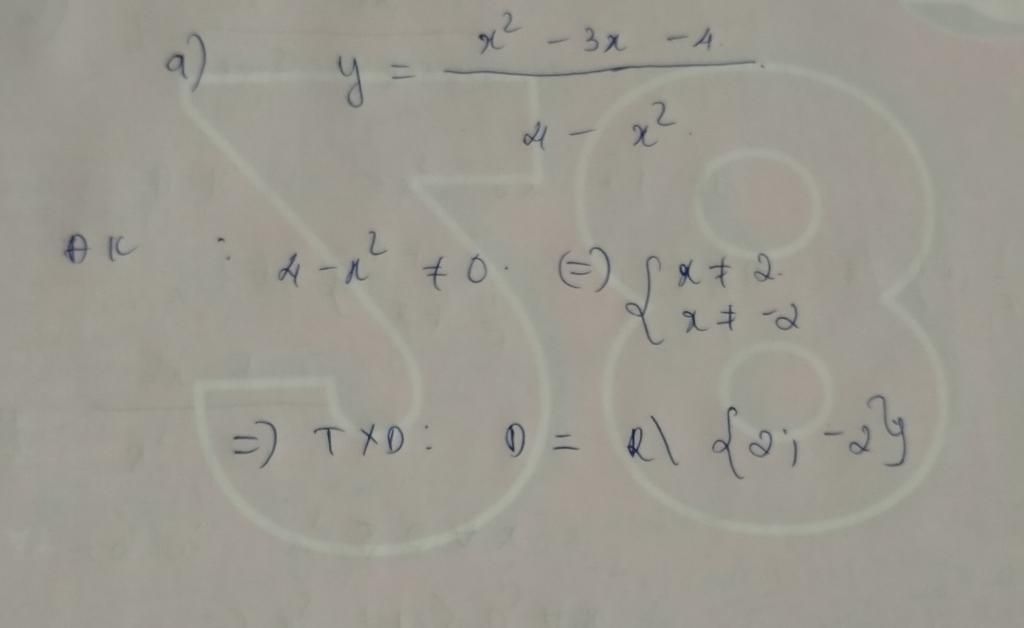 a) y = \frac{x² - 3x - 4}{4 - x²}
ĐK : 4 - x² ≠ 0. (=) { x ≠ 2
x ≠ -2
=) TXD : D = R\ {2; -2}
38